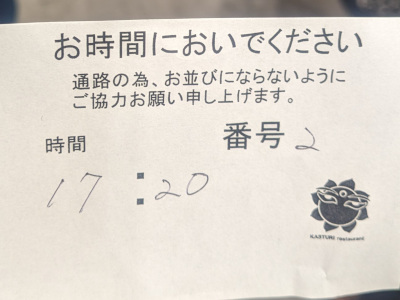 お時間においでください
通路の為、お並びにならないように
ご協力お願い申し上げます。
時間 番号 2
17:20
KASTURI restaurant